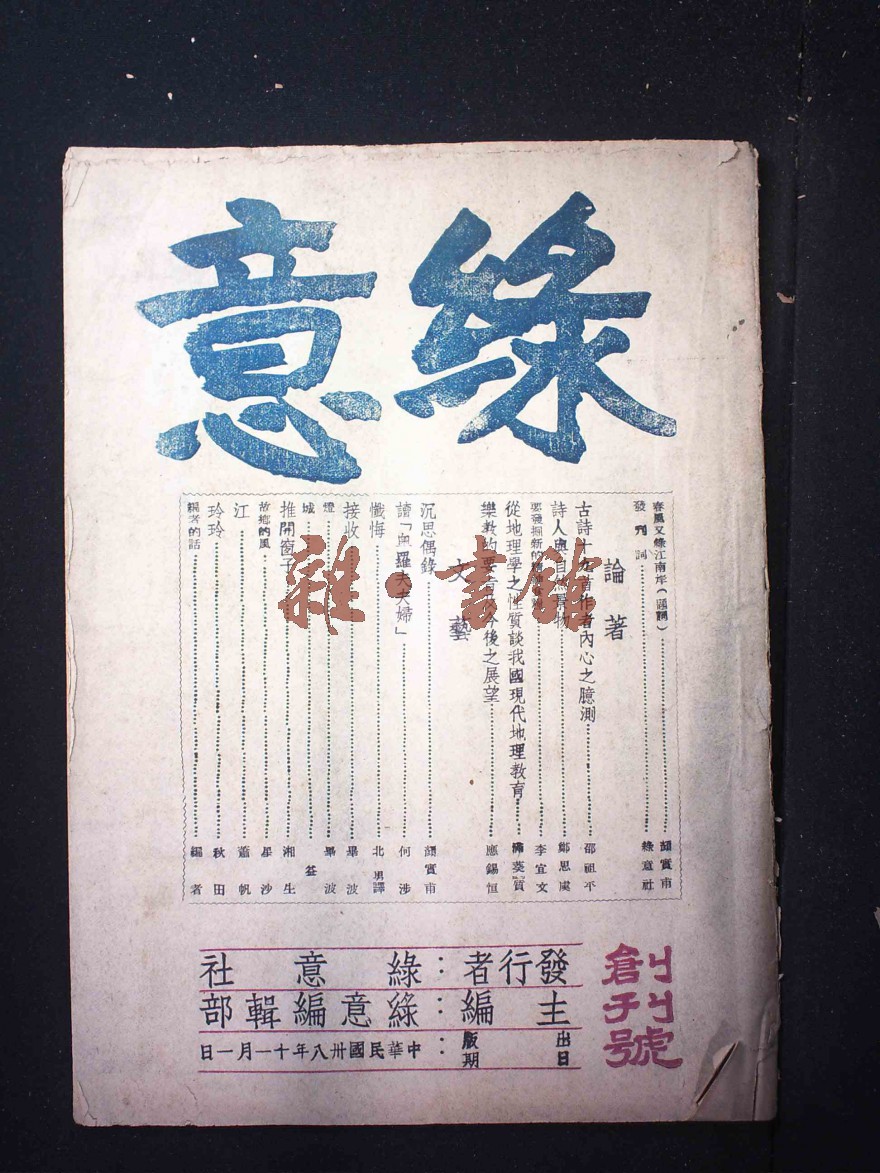 綠意
春風又綠江南岸(題詞)……顏實甫
發刊詞……綠意社
論著
古詩十九首作者內心之臆測……邵祖平
詩人與自然景物……鄭思虞
要發掘新的……李宜文
從地理學之性質談我國現代地理教育……質
樂教約要旨及今後之展望……應錫恒
文藝
沉思偶錄……顏實甫
讀「奥羅夫夫婦」……何涉
懺悔……北男譯
接收……畢波
燈……畢波
城……
推開窗子……湘生
故鄉的風……星沙
江……蕭帆
玲玲……秋田
編者的話……編者
雜·書館
創刊號
發行者:綠意社
主編:綠意編輯部
出版日期:中華民國卅八年十一月一日